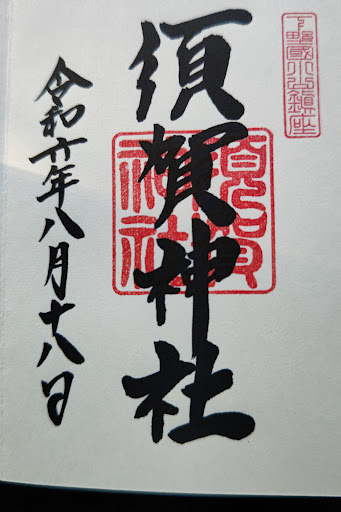 下野國小山鎮座
須賀神社
須賀神社
令和年八月十八日